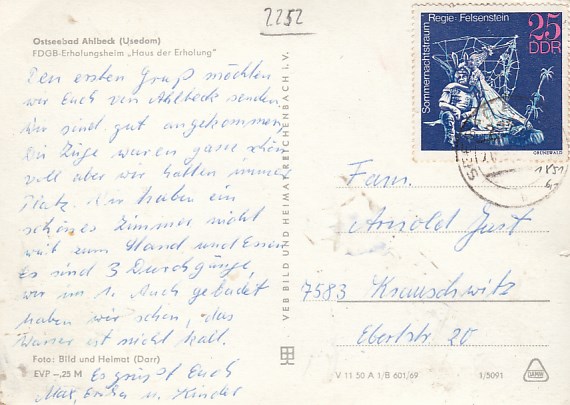 2252
Ostseebad Ahlbeck (Usedom)
FDGB-Erholungsheim „Haus der Erholung"
Den ersten Gruß möchten
wir Euch von Ahlbeck senden,
Wir sind gut angekommen,
Die Züge waren ganz schön
voll aber wir hatten immer
Platz. Wir haben ein
schönes Zimmer nicht
weit zum Strand und Essen
Es sind 3 Durchgänge,
wir im 1. Auch gebadet
haben wir schon, das
Wasser ist nicht kalt.
Foto: Bild und Heimat (Darr)
EVP –,25 M Es grüßt Euch
Max, Erika u. Kinder
VEB BILD UND HEIMAT REICHENBACH i. V.
Sommernachtstraum
Regie: Felsenstein
25
DDR
GRÜNEWALD
Fam.
Arnold Just
7583 Krauschwitz
Ebertstr. 20
V 11 50 A 1/B 601/69
1/5091